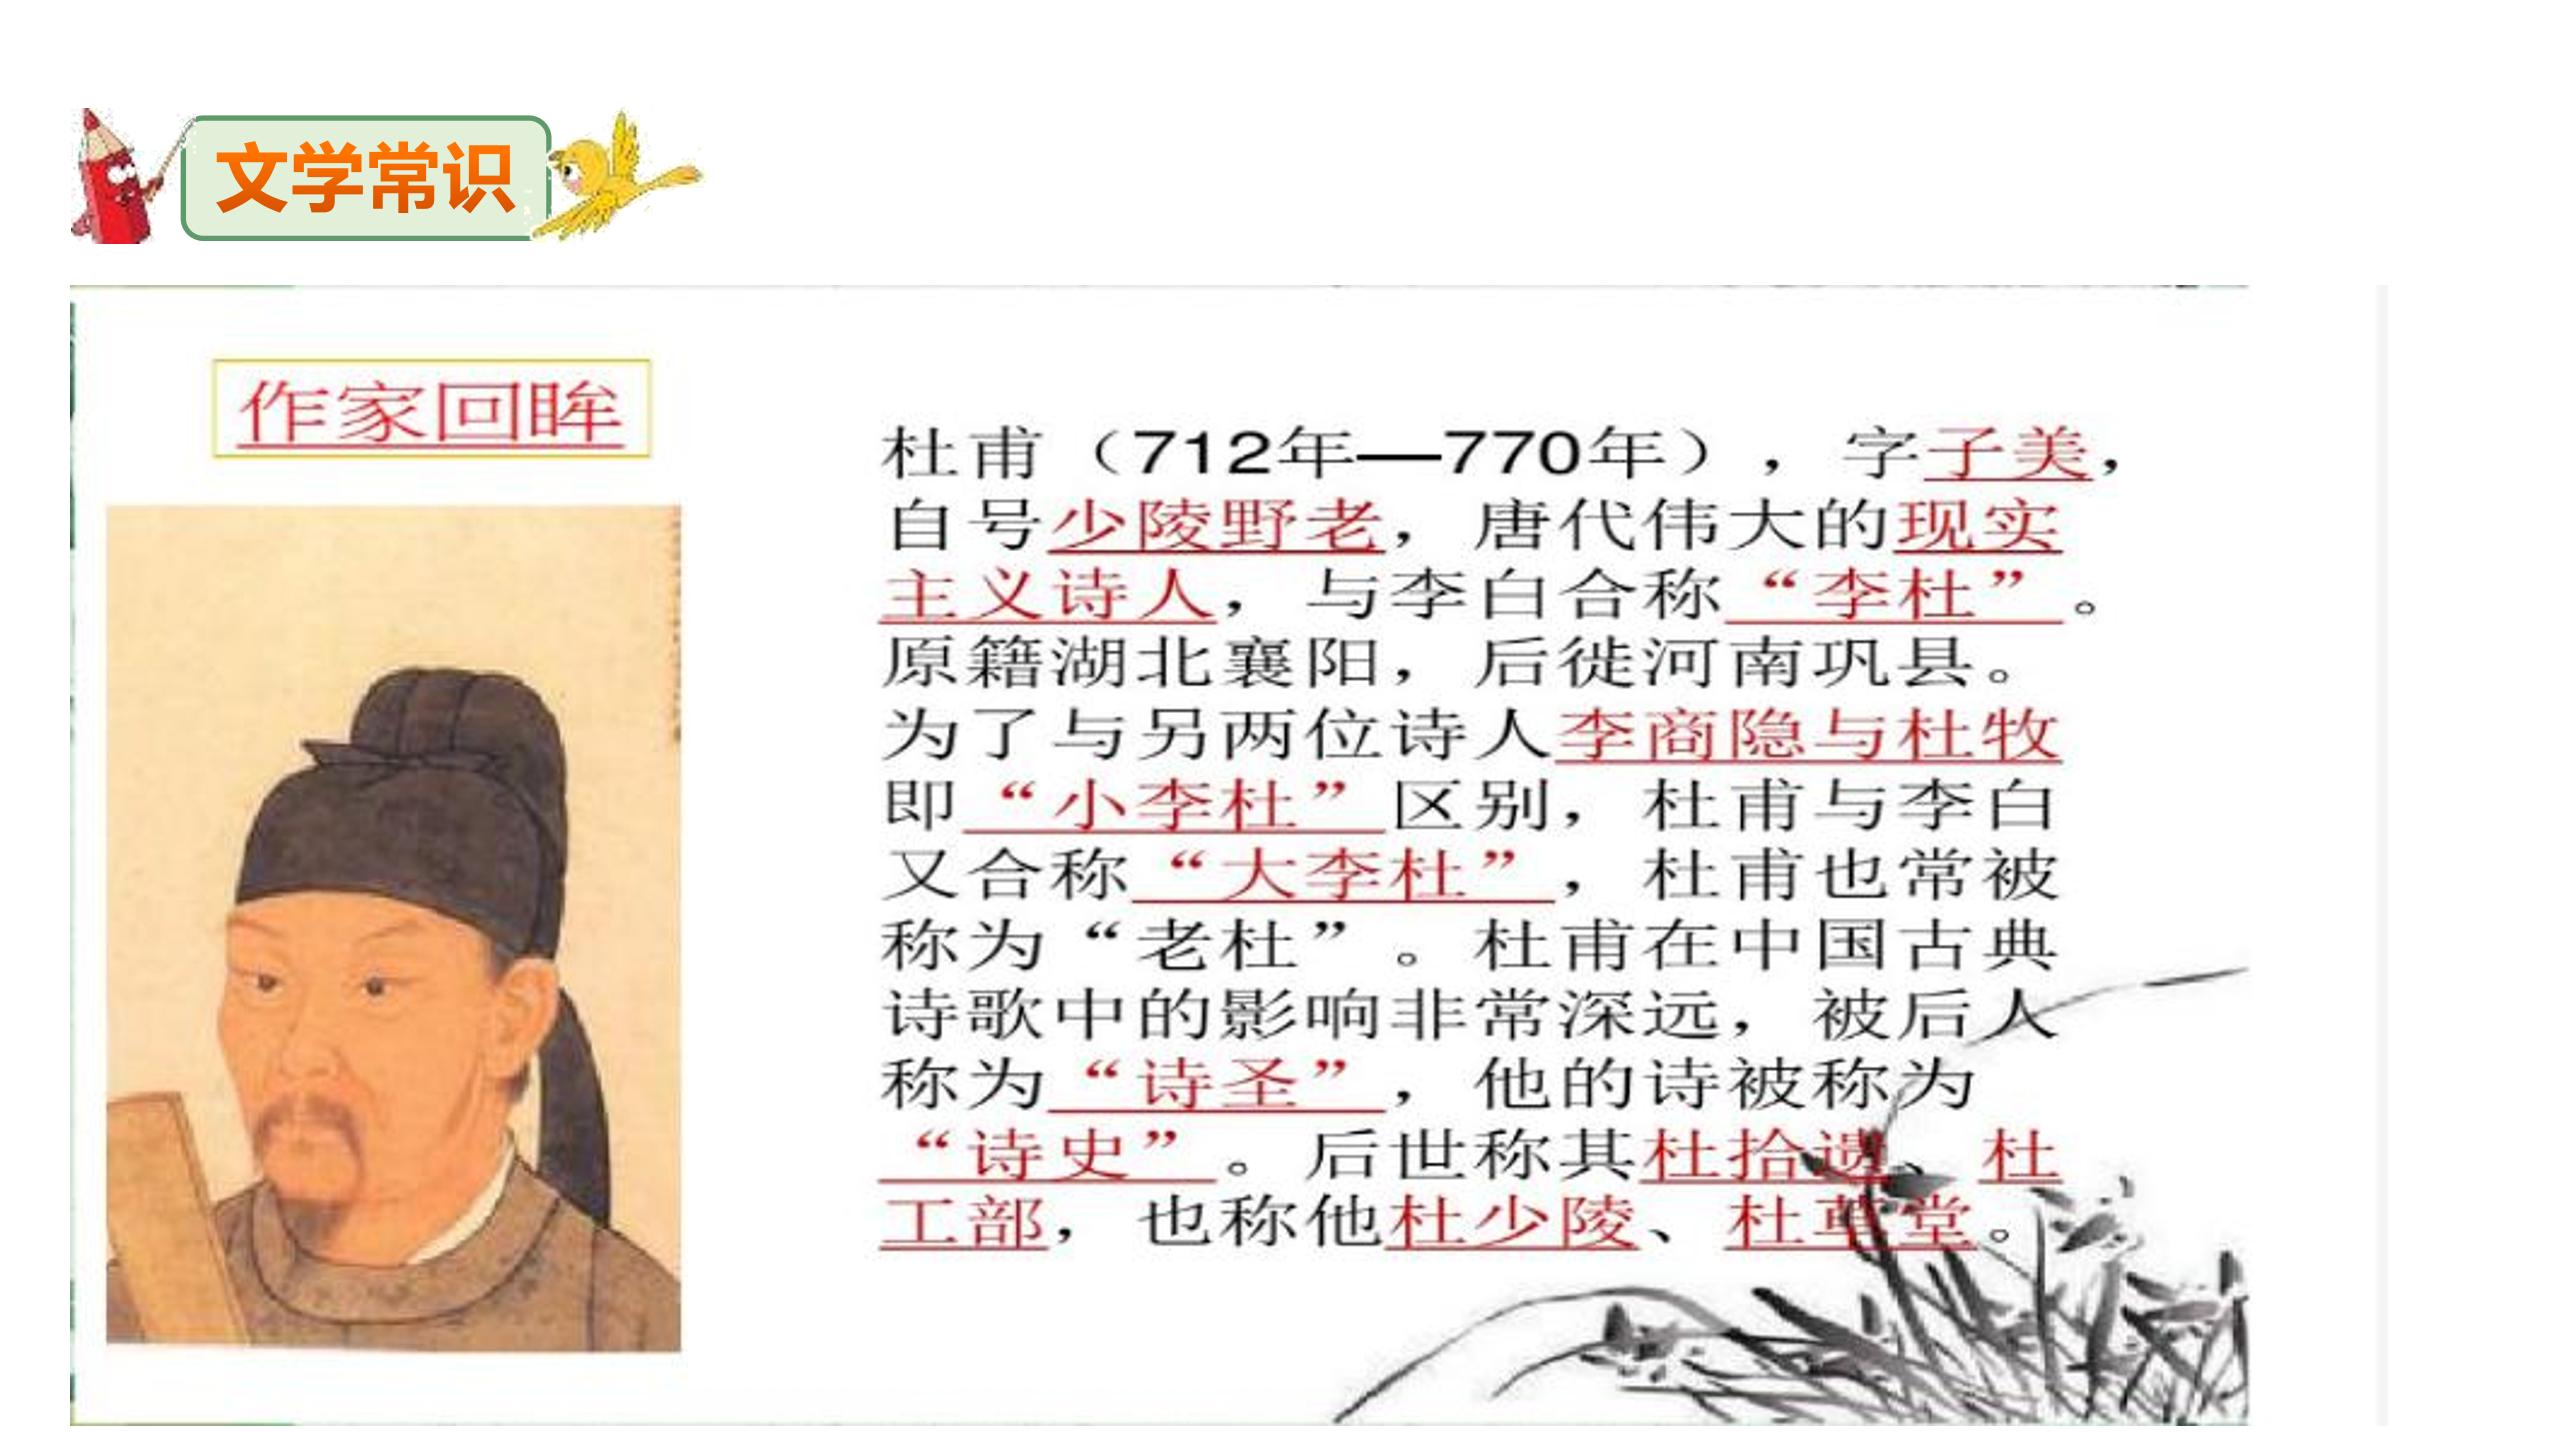 文学常识
作家回眸
杜甫（712年—770年），字子美，
自号少陵野老，唐代伟大的现实
主义诗人，与李白合称“李杜”。
原籍湖北襄阳，后徙河南巩县。
为了与另两位诗人李商隐与杜牧
即“小李杜”区别，杜甫与李白
又合称“大李杜”，杜甫也常被
称为“老杜”。杜甫在中国古典
诗歌中的影响非常深远，被后人
称为“诗圣”，他的诗被称为
“诗史”。后世称其杜拾遗、杜
工部，也称他杜少陵、杜草堂。